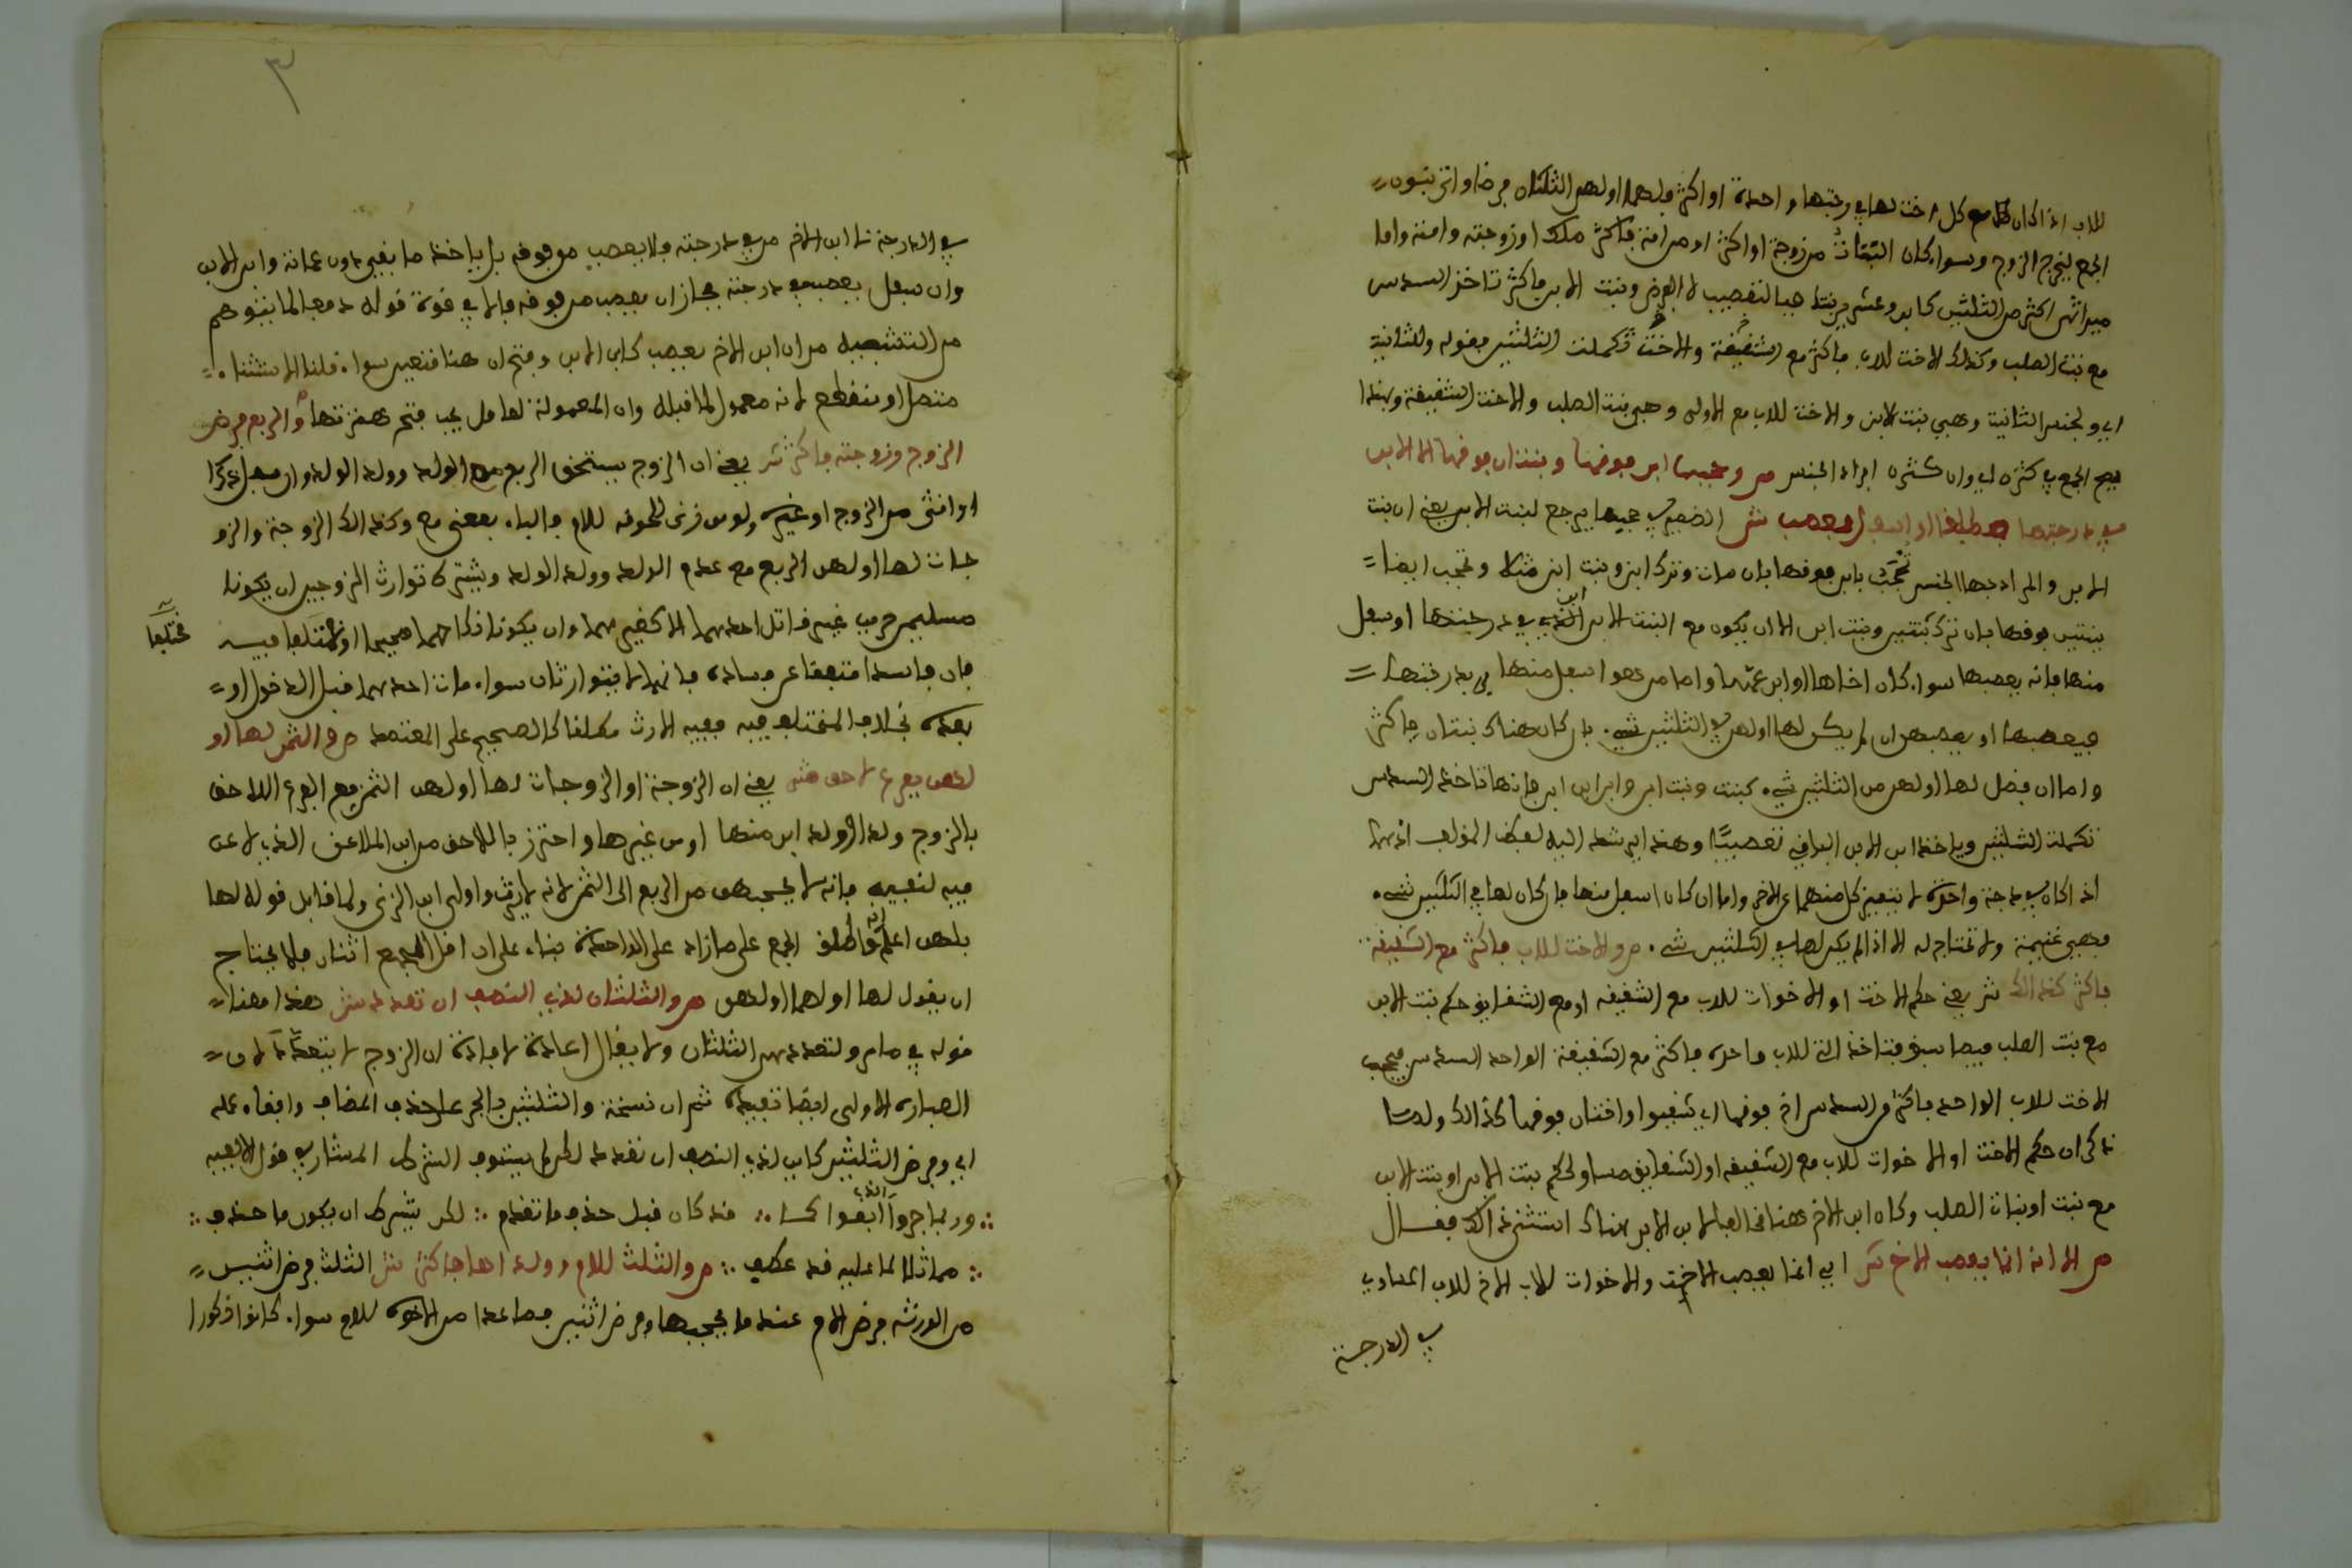 للاب اذا كان مع كل اخت لها في رجتها واحدة او اكثر فلهما او لهن الثلثان فرضا واتى بنون
الجمع ليخرج الزوج وسواء كان البنات من زوجة او اكثر او من امة فاكثر ملك او زوجته وامته واما
ميراثهن اكثر من الثلثين كابن وعشرين بنتا فبالتعصيب لا بالفرض وبنت الابن فاكثر تاخذ السدس
مع بنت الصلب وكذلك الاخت للاب فاكثر مع الشقيقة والاخت تكملت الثلثين بقوله وللثانية
اي ولجنس الثانية وهي بنت الابن والاخت للاب مع الاولى وهي بنت الصلب والاخت الشقيقة وبهذا
صح الجمع في كثره اي وان كثره افراد الجنس ص وحجبها ابن فوقها وبنتان فوقها الا الابن
في درجتها مطلقا او اسفل فمعصب ش الضمير في حجبها يرجع لبنت الابن يعني ان بنت
الابن والمراد بها الجنس تحجب بابن فوقها بان مات وترك ابن وبنت ابن مثلا وتحجب ايضا
ببنتين فوقها بان ترك بنتين وبنت ابن الا ان يكون مع البنت الابن ابن الذي في درجتها او سفل
منها فانه يعصبها سواء كان اخاها او ابن عمها واما من هو اسفل منها في درجتها
فيعصبها او يعصبهن ان لم يكن لها او لهن في الثلثين شيء. بان كان هناك بنتان فاكثر
واما ان فضل لها او لهن من الثلثين شيء. كبنت وبنت ابن وابن ابن ابن فانها تاخذ السدس
تكملت الثلثين وياخذ ابن الابن الباقي تعصيبا وهذا يرشد اليه لفظ المؤلف اذ هما
اذ اكان في درجة واحدة لا يتميز كل منهما عن الاخر واما ان كان اسفل منها فان كان لها في الثلثين شيء.
فهي غنيمة ولا تحتاج له الا اذا لم يكن لها في الثلثين شيء. ص والاخت للاب فاكثر مع الشقيقة
فاكثر كذالك ش يعني حكم الاخت او الاخوات للاب مع الشقيقة او مع الشقايق حكم بنت الابن
مع بنت الصلب فيما سبق فتاخذ التي للاب واحدة فاكثر مع الشقيقة الواحد السدس فيحجب
الاخت للاب الواحد فاكثر من السدس اخ فوقها اي شقيق او اختان فوقها كذالك ولما
ذكر ان حكم الاخت او الاخوات للاب مع الشقيقه او الشقايق مساو لحكم بنت الابن او بنت الابن
مع بنت او بنات الصلب وكان ابن الاخ هنا مخالفا لابن الابن هناك استثنى ذالك فقال
ص الا انه انما يعصب الاخ ش اي انما يعصب الاخت والاخوات للاب الاخ للاب المساوي
في الدرجة
٣
في الدرجة لا ابن الاخ من في درجته فلا يعصب من فوقه بل ياخذ ما بقي دون عماته وابن الابن
وان سفل يعصب من في درجته فجاز ان يعصب من فوقه
من التشبيه من ان ابن الاخ يعصب كابن الابن وفتح ان هنا متعين سواء. قلنا الاستثناء.
متصل او منقطع لانه معمول لما قبله وان المعمولة لعامل يجب فتح همزتها ص والربع فرض
الزوج وزوجته فاكثر ش يعني ان الزوج يستحق الربع مع الولد وولد الولد وان سفل ذكرا
او انثى من الزوج او غيره ولو من زنى للحوقه للام فالباء بمعنى مع وكذالك الزوجة والزو
جات لها او لهن الربع مع عدم الولد وولد الولد ويشترط توارث الزوجين ان يكونا
مسلمين حرين غير قاتل احدهما الاخر وان يكون نكاحهما صحيحا او مختلفا فيه
مختلفا
فان فاسدا متفقا على فساده فانهما لا يتوارثان سواء. مات احدهما قبل الدخول او
بعده بخلاف المختلف فيه ففيه الارث مطلقا كالصحيح على المعتمد ص والثمن لها او
لهن بفرع لاحق ش يعني ان الزوجة او الزوجات لها او لهن الثمن مع الفرع اللاحق
بالزوج ولد او ولد ابن منها او من غيرها واحترز باللاحق من ابن الملاعن الذي لاعن
فيه لنفيه فانه لا يحجبهن من الربع الى الثمن لانه لا يرث واولى ابن الزنى ولما قابل قوله لها
بلهن اعلم انه اطلق الجمع على ما زاد على الواحدة بناء على ان اقل الجمع اثنان فلا يحتاج
ان يقول لها او لهما او لهن ص والثلثان لذي النصف ان تعدد ش هذا معنا
قوله في ما مر ولتعددهن الثلثان ولا يقال اعادة لافادة ان الزوج لا يتعدد لان
العباره الاولى ايضا تفيده ثم ان نسخة والثلثين بالجر على حذف المضاف وابقاء عمله
اي وفرض الثلثين كاين لذي النصف ان تعدد لكن لم يستوف الشرط المشار في قول الالفيه
وربما جروا الذي ابقوا كما قد كان قبل حذف ما تقدم لكن بشرط ان يكون ما حذف
مماثلا لما عليه قد عطف ص والثلث للام وولداها فاكثر ش الثلث فرض اثنين
من الورثه فرض الام عند ما يحجبها وفرض اثنين فصاعدا من الاخوة للام سواء. كانوا ذكورا